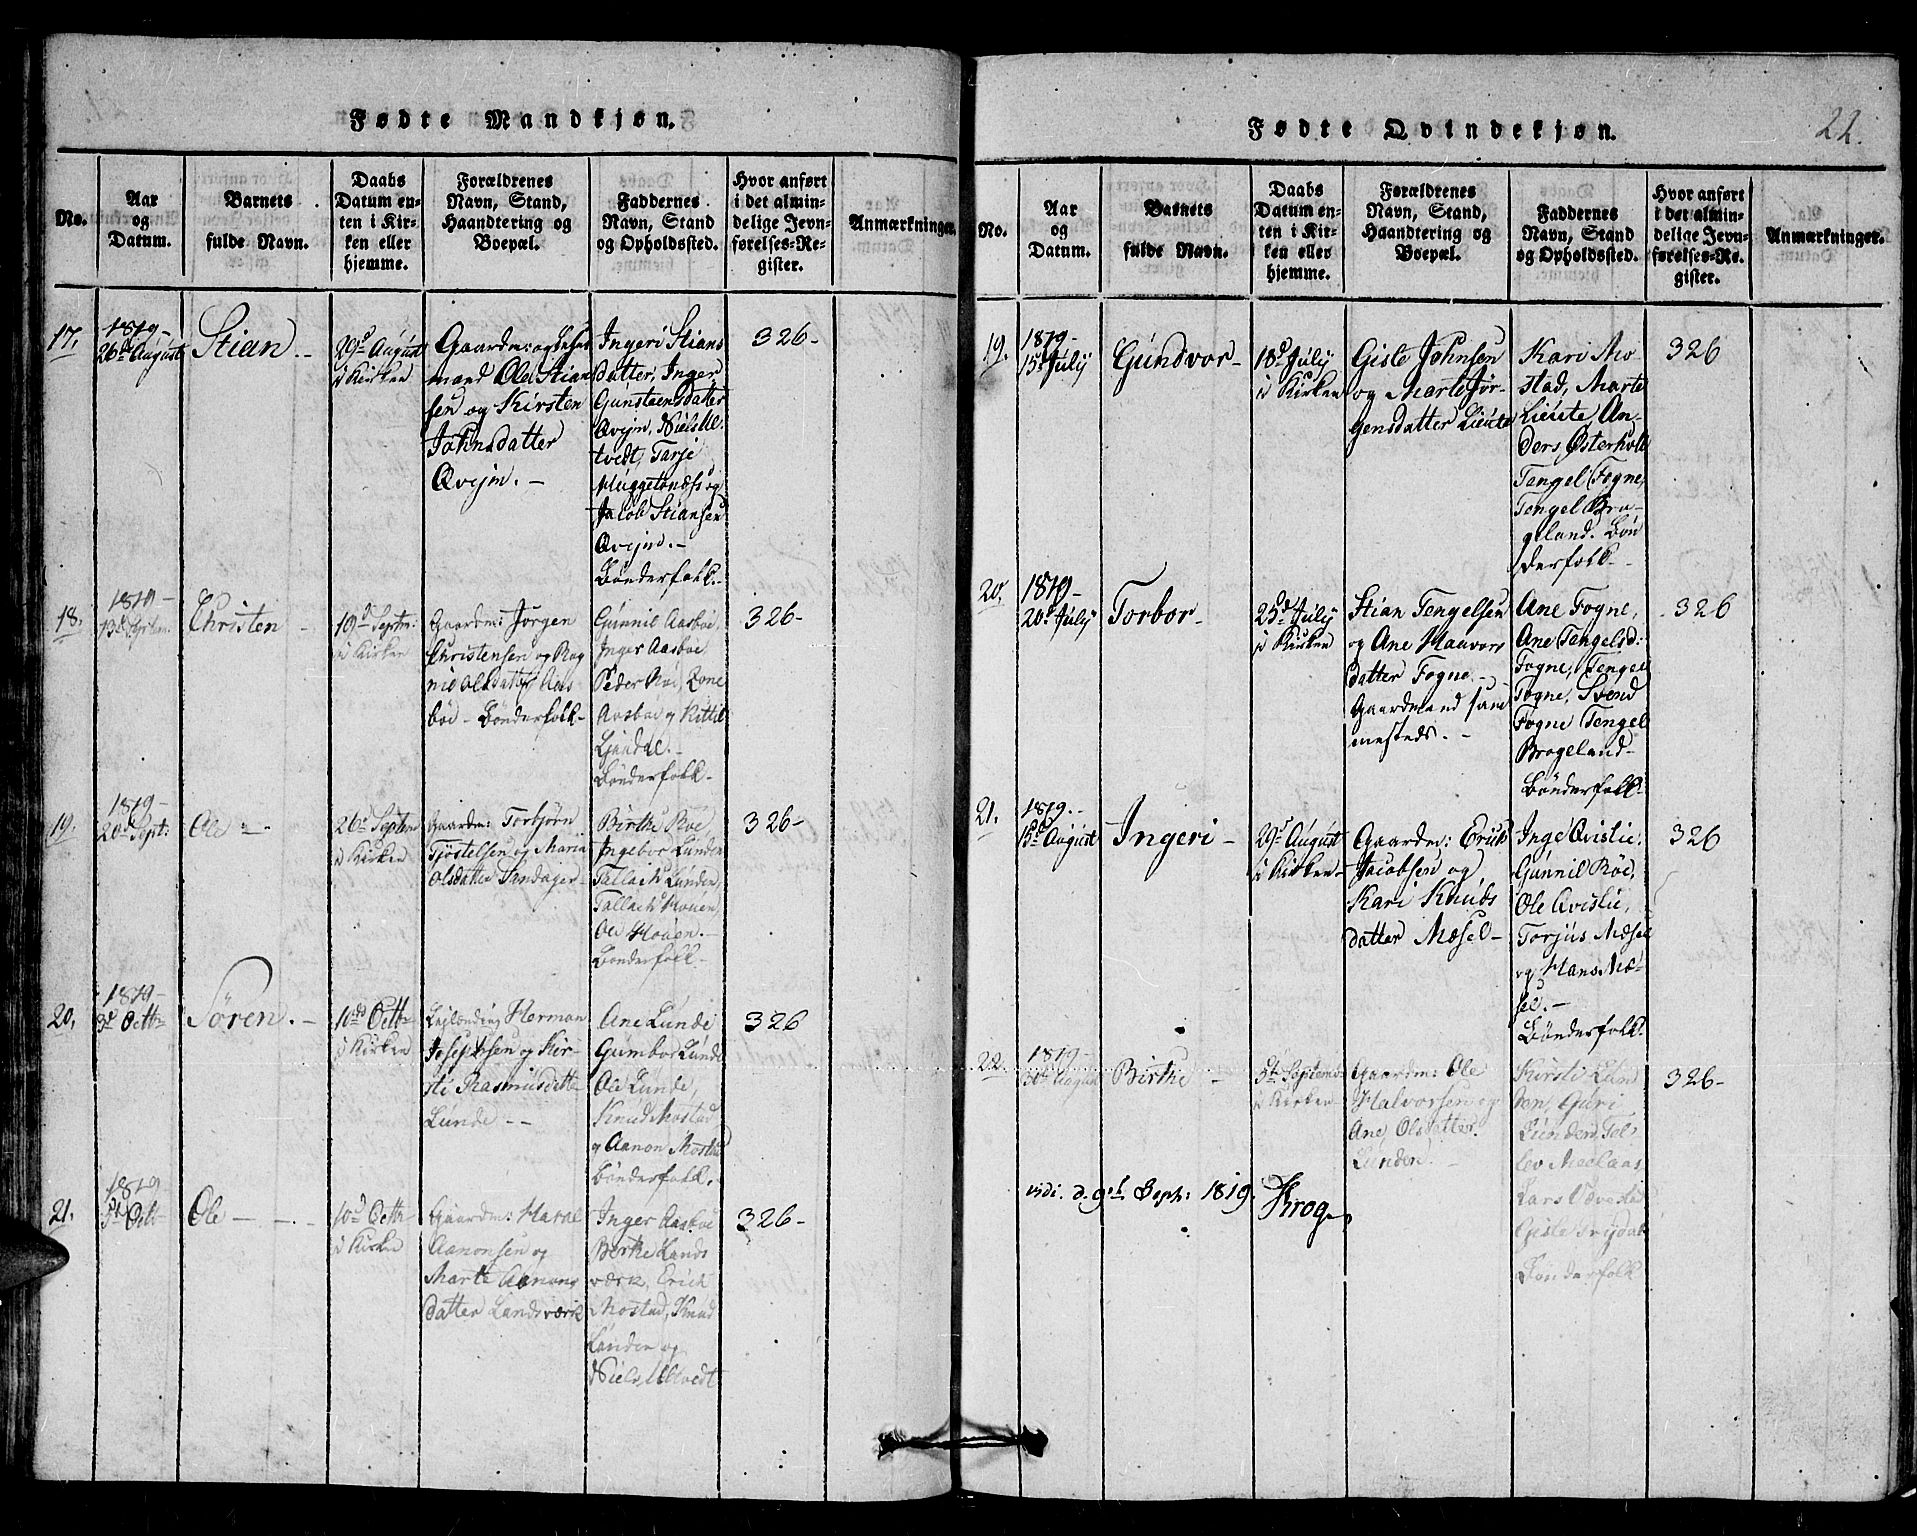 Fødte Mandkjøn.
No.
Aar
og
Datum.
Barnets
fulde Navn.
Daabs
Datum en-
ten i Kir-
ken eller
hjemme.
Forældrenes
Navn, Stand,
Haandtering og
Boepæl.
Faddernes
Navn, Stand
og Opholdssted.
Hvor anført
i det almin-
delige Jevn-
førelses-Re-
gister.
Anmærkninger.
17.
1819-
26d August
Stian -
29d August
i Kirken
Gaardm: og
mand Ole Stian
sen og Kirsten
Johnsdatter
Qvejm. -
Ingeri Stians
datter, Inger
Gunsteensdatter
Qvejm, Niels Ul-
tvedt, Tarje
og
Jacob Stiansen
Qvejm. -
Bønderfolk. -
326-
18.
1819-
13d Septbr.
Christen -
19d Septbr:
i Kirken
Gaardm: Jørgen
Christensen og Rag
nild Olsdatter Aas-
böe - Bønderfolk -
Gunnil Aasböe,
Inger Aasböe,
Peder Röe,
Aasböe og Kittil
Bønderfolk -
326-
19.
1819-
20d Sept:
Ole -
26d Septem
i Kirken
Gaardm: Torbjörn
Tjöstelsen og Maria
Olsdatter Sandager -
Birthe Röe,
Ingebor Lunden
Tallach Lunden,
Tallach Hoven,
Ole Hoven. -
Bønderfolk -
326-
20.
1819-
3d Octb-
Sören. -
10d Octb-
i Kirken
Lejlænding Herman
Josephsen og Kir-
sti Rasmusdatter
Lunde - -
Ane Lunde
Gumbor Lunde
Ole Lunde,
Knud Mostad
og Aanon Mostad
Bønderfolk.
326
21.
1819
5d Octb-
Ole - -
10d Octb-
i Kirken
Gaardm: Haral
Aanonsen og
Marte Aanons
datter Landsværk
Inger Aasböe
Berthe Lands
værk, Erich
Mostad, Knud
Lunden og
Niels Ultvedt
326-
Fødte Qvindekjøn.
22.
No.
Aar
og
Datum.
Barnets
fulde Navn.
Daabs
Datum en-
ten i Kir-
ken eller
hjemme.
Forældrenes
Navn, Stand,
Haandtering og
Boepæl.
Faddernes
Navn, Stand
og Opholdssted.
Hvor anført
i det almin-
delige Jevn-
førelses-Re-
gister.
Anmærkninger.
19.
1819-
15d July
Gundvor -
18d July
i Kirken
Gisle Johnsen
og Marte Jör-
gensdatter Lieute
Kari Mo-
stad, Marte
Lieute An-
ders Österholt
Tengel Fogne,
Tengel Bra-
geland. Bön
derfolk -
326
20.
1819-
20d July
Torbor -
25d July
i Kirken
Stian Tengelsen
og Ane Haavors
datter Fogne -
Gaardmand sam
mesteds. -
Ane Fogne,
Ane Tengelsd:
Fogne, Tengel
Fogne, Svend
Fogne Tengel
Brageland -
Bønderfolk.
326
21.
1819. -
15d August
Ingeri -
29d August
i Kirken -
Gaardm: Erich
Jacobsen og
Kari Knuds
datter Mæsel -
Inge Qvislie,
Gunnil Röe,
Ole Qvislie,
Torjus Mæsel
og Hans Mæ-
sel. -
Bønderfolk.
326
22.
1819-
30d August
Birthe -
5te Septemb-
i Kirken -
Gaardm: Ole
Halvorsen og
Ane Olsdatter
Lunden. -
Kirsti Lun
den, Guri
Lunden, Tel-
lev Meelaas
Lars Udvestad
Gisle Frydal
Bønderfolk
326-
vidi. d. 9d Sept: 1819.
Krog